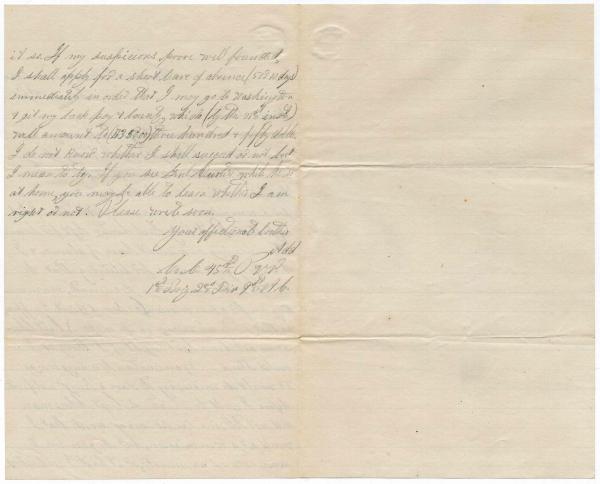 it so. If my suspicions prove well founded,
I shall apply for a short leave of absence (5 or 10 dys)
immediately in order that I may go to Washington
& get my back pay & bounty, which (by the inst)
will amount to ($350.00) three hundred & fifty dolls.
I do not know whether I shall succeed or not but
I mean to try. If you see while he is
at home, you may be able to learn whether I am
right or not. Please write soon.
Your affectionate brother
Co. 45th P.V.V.
1st Brig 2d Div 9th A.C.